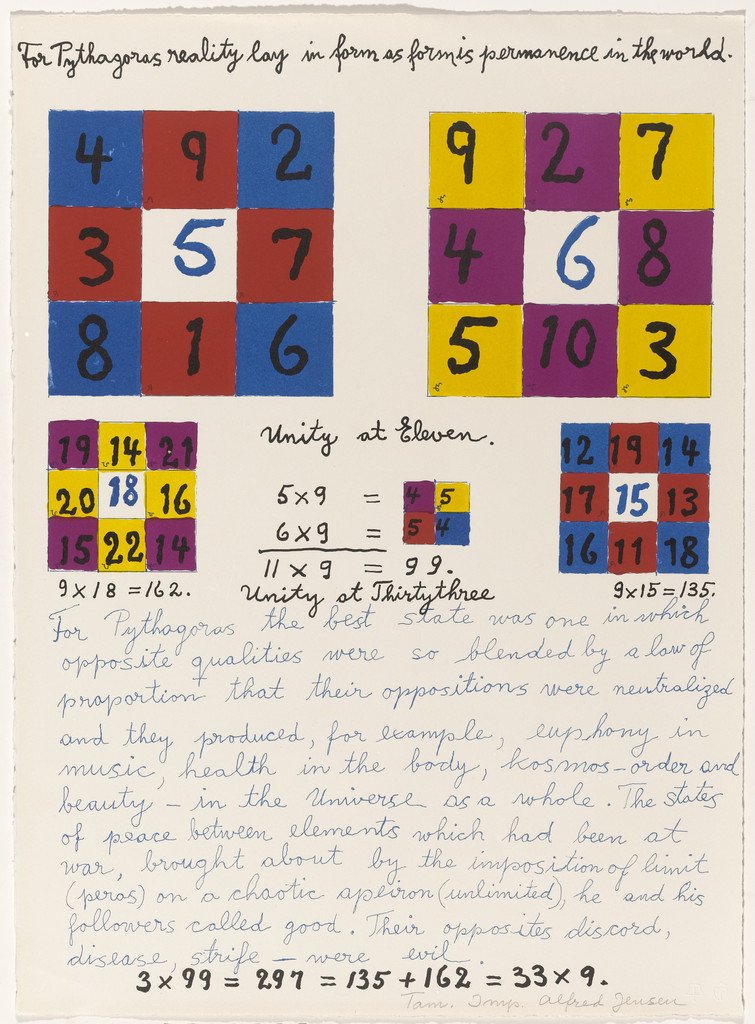 For Pythagoras reality lay in form as form is permanence in the world.
4 9 2
3 5 7
8 1 6
9 2 7
4 6 8
5 10 3
19 14 21
20 18 16
15 22 14
9 x 18 = 162.
Unity at Eleven.
5 x 9 = 4 5
6 x 9 = 5 4
11 x 9 = 99.
Unity at Thirtythree
12 19 14
17 15 13
16 11 18
9 x 15 = 135.
For Pythagoras the best state was one in which
opposite qualities were so blended by a law of
proportion that their oppositions were neutralized
and they produced, for example, euphony in
music, health in the body, kosmos-order and
beauty – in the Universe as a whole. The states
of peace between elements which had been at
war, brought about by the imposition of limit
(peras) on a chaotic apeiron (unlimited), he and his
followers called good. Their opposites discord,
disease, strife – were evil.
3 x 99 = 297 = 135 + 162 = 33 x 9.
Tam. Imp. Alfred Jensen